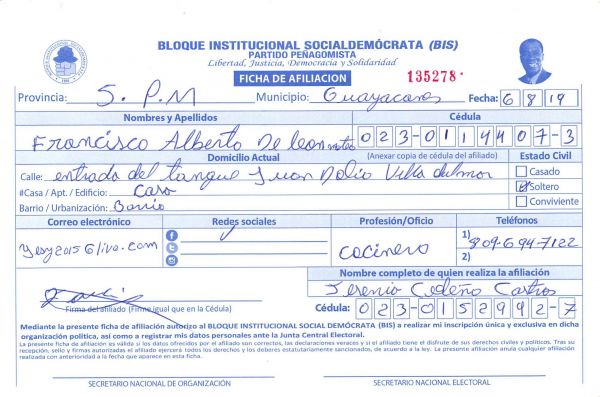 BLOQUE INSTITUCIONAL SOCIALDEMÓCRATA (BIS)
PARTIDO PEÑAGOMISTA
Libertad, Justicia, Democracia y Solidaridad
FICHA DE AFILIACION
135278
Provincia: S. P. M Municipio: Guayacanes Fecha: 6 8 19
Nombres y Apellidos Cédula
Francisco Alberto De leon 023-0114407-3
Domicilio Actual (Anexar copia de cédula del afiliado) Estado Civil
Calle: entrada del tanque Juan Dolio Villa del mar Casado
#Casa / Apt. / Edificio: Casa Soltero
Barrio / Urbanización: Barrio Conviviente
Correo electrónico Redes sociales Profesión/Oficio Teléfonos
yesy2015@live.com cocinero 1) 809-694-7122
2)
Nombre completo de quien realiza la afiliación
Cedeño Castro
Firma del afiliado (Firme igual que en la Cédula) Cédula: 023-0152992-7
Mediante la presente ficha de afiliación autorizo al BLOQUE INSTITUCIONAL SOCIAL DEMÓCRATA (BIS) a realizar mi inscripción única y exclusiva en dicha
organización política, así como a registrar mis datos personales ante la Junta Central Electoral.
La presente ficha de afiliación es válida si los datos ofrecidos por el afiliado son correctos, las declaraciones veraces y si el afiliado tiene el disfrute de sus derechos civiles y políticos. Tras su
recepción, sello y firmas autorizadas el afiliado ejercerá todos los derechos y los deberes estatutariamente sancionados, de acuerdo a la ley. La presente afiliación anula cualquier afiliación
realizada con anterioridad a la fecha que aparece en esta ficha.
SECRETARIO NACIONAL DE ORGANIZACIÓN SECRETARIO NACIONAL ELECTORAL